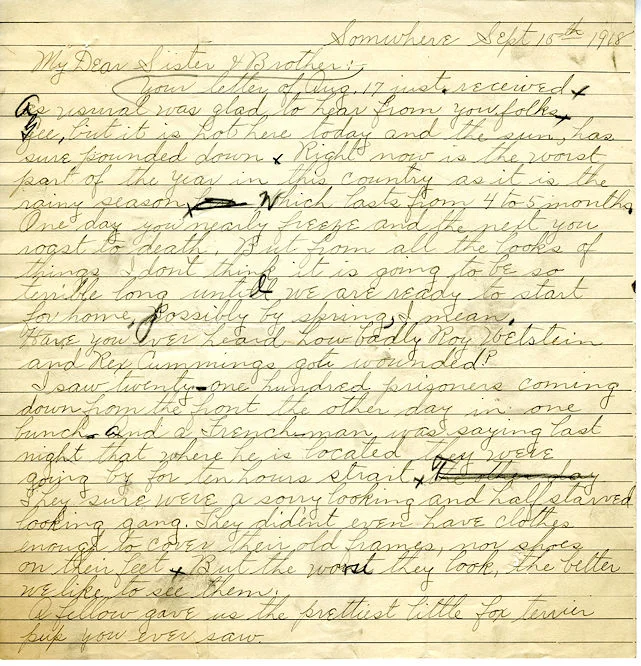 Somwhere Sept 15th 1918
My Dear Sister & Brother:-
Your letter of Aug. 17 just received x
As usual was glad to hear from you folks x
Gee, but it is hot here today and the sun, has
sure pounded down x Right now is the worst
part of the year in this country as it is the
rainy season x Which lasts from 4 to 5 months.
One day you nearly freeze and the next you
roast to death. But from all the looks of
things I dont think it is going to be so
terrible long until we are ready to start
for home, Possibly by spring, I mean.
Have you ever heard how badly Roy Wetstein
and Rex Cummings got wounded!?
I saw twenty-one hundred prisoners coming
down from the front the other day in one
bunch- And a Frenchman was saying last
night that where he is located they were
going by for ten hours strait x The other day
They sure were a sorry looking and half starved
looking gang. They did'ent even have clothes
enough to cover their old frames, nor shoes
on their feet x But the worst they look, the better
we like to see them.
A fellow gave us the prettiest little fox terrier
pup you ever saw.